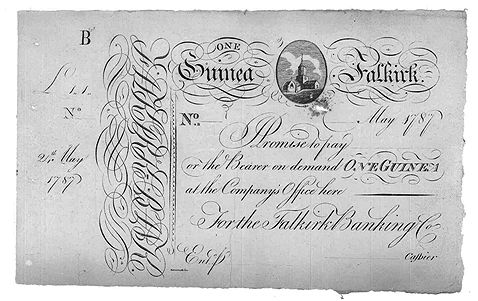 B
£ 1.1.
No
24th May
1787
ONE
Guinea Falkirk.
No. May 1787
I Promise to pay
or the Bearer on demand ONE GUINEA
at the Company's Office here
For the Falkirk Banking Co
Entd.
Cashier